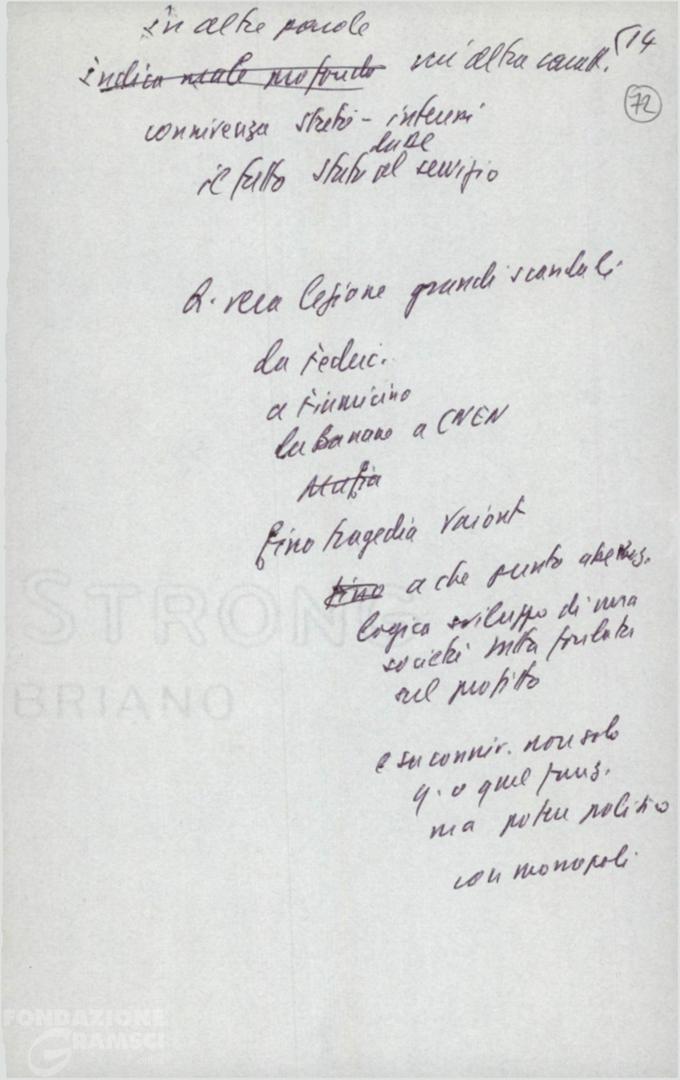 in altre parole
14
indica male profondo un'altra caratt.
72
connivenza stato - interessi
il fatto stato al servizio
è vera lezione grandi scandali
da Feder.
a Fiumicino
da Banane a CNEN
Mafia
fino tragedia Vaiont
fino a che punto aberraz.
logica sviluppo di una
società tutta fondata
sul profitto
e su conniv. non solo
q. o quel funz.
ma potere politico
con monopoli
STRONG
BRIANO
FONDAZIONE
GRAMSCI